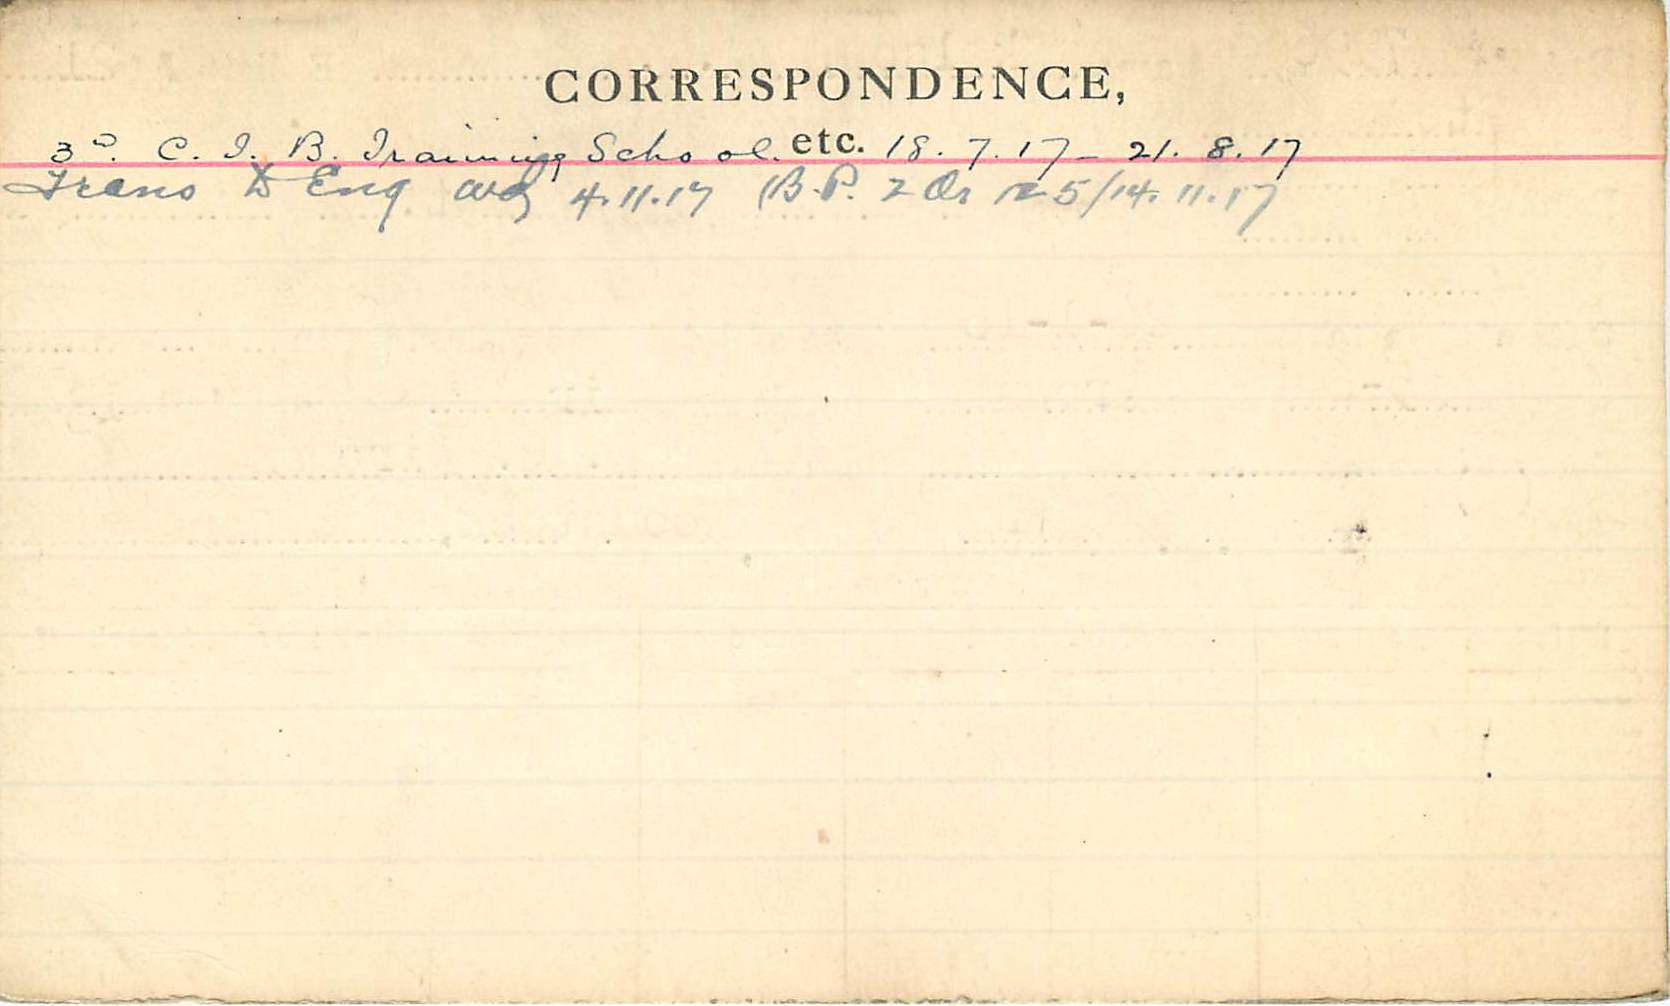 CORRESPONDENCE,
etc.
3rd. C. I. B. Training School. 18. 7. 17 - 21. 8. 17
Trans to Eng wdg 4.11.17 (B.P. 2 Or 25/14. 11.17